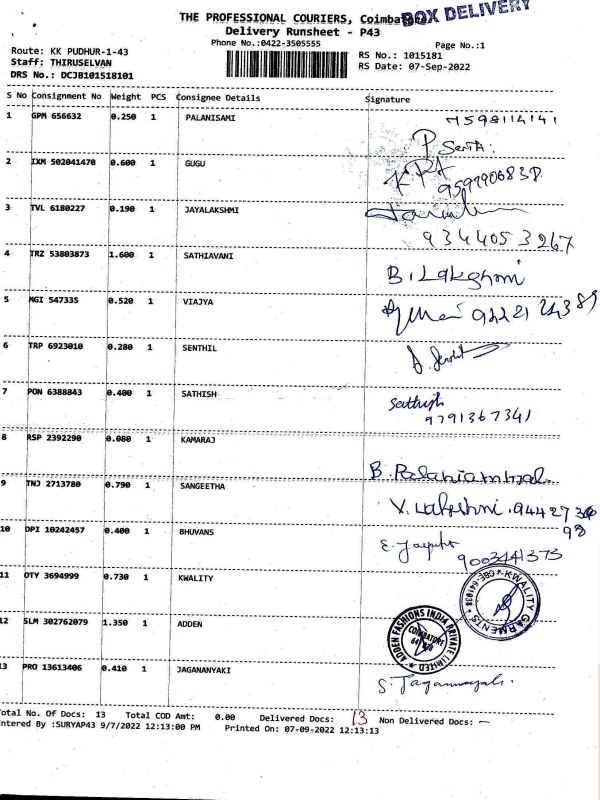 THE PROFESSIONAL COURIERS, Coimbatore
BOX DELIVERY
Delivery Runsheet - P43
Phone No.:0422-3505555
Page No.:1
Route: KK PUDHUR-1-43
RS No.: 1015181
Staff: THIRUSELVAN
RS Date: 07-Sep-2022
DRS No.: DCJB101518101
S No Consignment No Weight PCS Consignee Details Signature
1 GPM 656632 0.250 1 PALANISAMI
P Senth.
2 IXM 502041470 0.600 1 GUGU
3 TVL 6180227 0.190 1 JAYALAKSHMI
9344053267
4 TRZ 53803873 1.600 1 SATHIAVANI
B. Lakshmi
5 MGI 547335 0.520 1 VIAJYA
6 TRP 6923010 0.280 1 SENTHIL
7 PON 6388843 0.400 1 SATHISH
Sathish
9791367341
8 RSP 2392290 0.080 1 KAMARAJ
B. Palaniammal
9 TNJ 2713780 0.790 1 SANGEETHA
V. Lakshmi . 944273
98
10 DPI 10242457 0.400 1 BHUVANS
E. 
9003441373
11 OTY 3694999 0.730 1 KWALITY
KWALITY GARMENTS * CBE-641038 *
12 SLM 302762079 1.350 1 ADDEN
ADDEN FASHIONS INDIA PRIVATE LIMITED
COIMBATORE
13 PRO 13613406 0.410 1 JAGANANYAKI
S. Jagannayaki.
Total No. Of Docs: 13 Total COD Amt: 0.00 Delivered Docs: 13 Non Delivered Docs: —
Entered By :SURYAP43 9/7/2022 12:13:00 PM Printed On: 07-09-2022 12:13:13